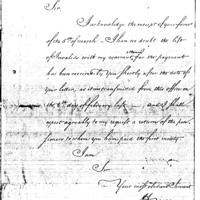 Sir,
I acknowledge the receipt of your favor
of the 5th of march – I have no doubt the list
of Invalids with my warrant for the payment
has been received by you shortly after the date of
your letter, as it was transmitted from this office on
the day of february last – and I shall
expect agreeably to my request a return of the per-
sons to whom you have paid the first moiety
I am
Sir
Your most obedient Servant